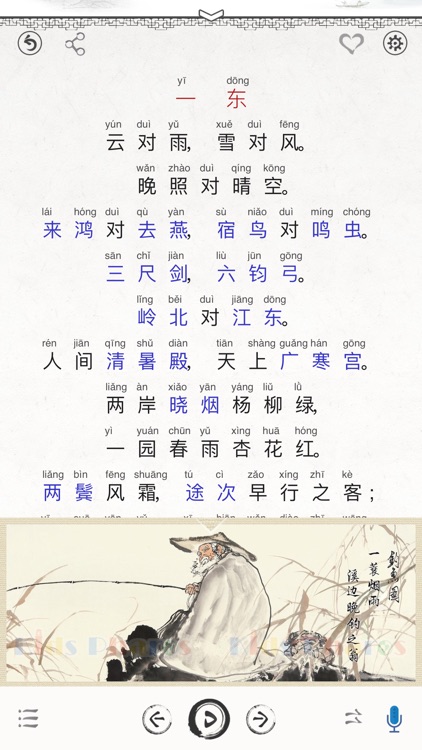 yī dōng
一 东
yún duì yǔ xuě duì fēng
云对雨,雪对风。
wǎn zhào duì qíng kōng
晚照对晴空。
lái hóng duì qù yàn sù niǎo duì míng chóng
来鸿对去燕,宿鸟对鸣虫。
sān chǐ jiàn liù jūn gōng
三尺剑,六钧弓。
lǐng běi duì jiāng dōng
岭北对江东。
rén jiān qīng shǔ diàn tiān shàng guǎng hán gōng
人间清暑殿,天上广寒宫。
liǎng àn xiǎo yān yáng liǔ lǜ
两岸晓烟杨柳绿,
yì yuán chūn yǔ xìng huā hóng
一园春雨杏花红。
liǎng bìn fēng shuāng tú cì zǎo xíng zhī kè
两鬓风霜,途次早行之客;
一蓑烟雨
溪边晚钓之翁